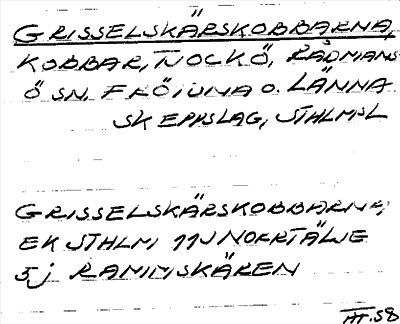 GRISSELSKÄRSKOBBARNA,
KOBBAR, NOCKÖ, RÅDMANS-
Ö SN, FRÖTUNA O. LÄNNA
SKEPPSLAG, STHLMSL
GRISSELSKÄRSKOBBARNA,
EK STHLM 11J NORRTÄLJE
5j RAMMSKÄREN